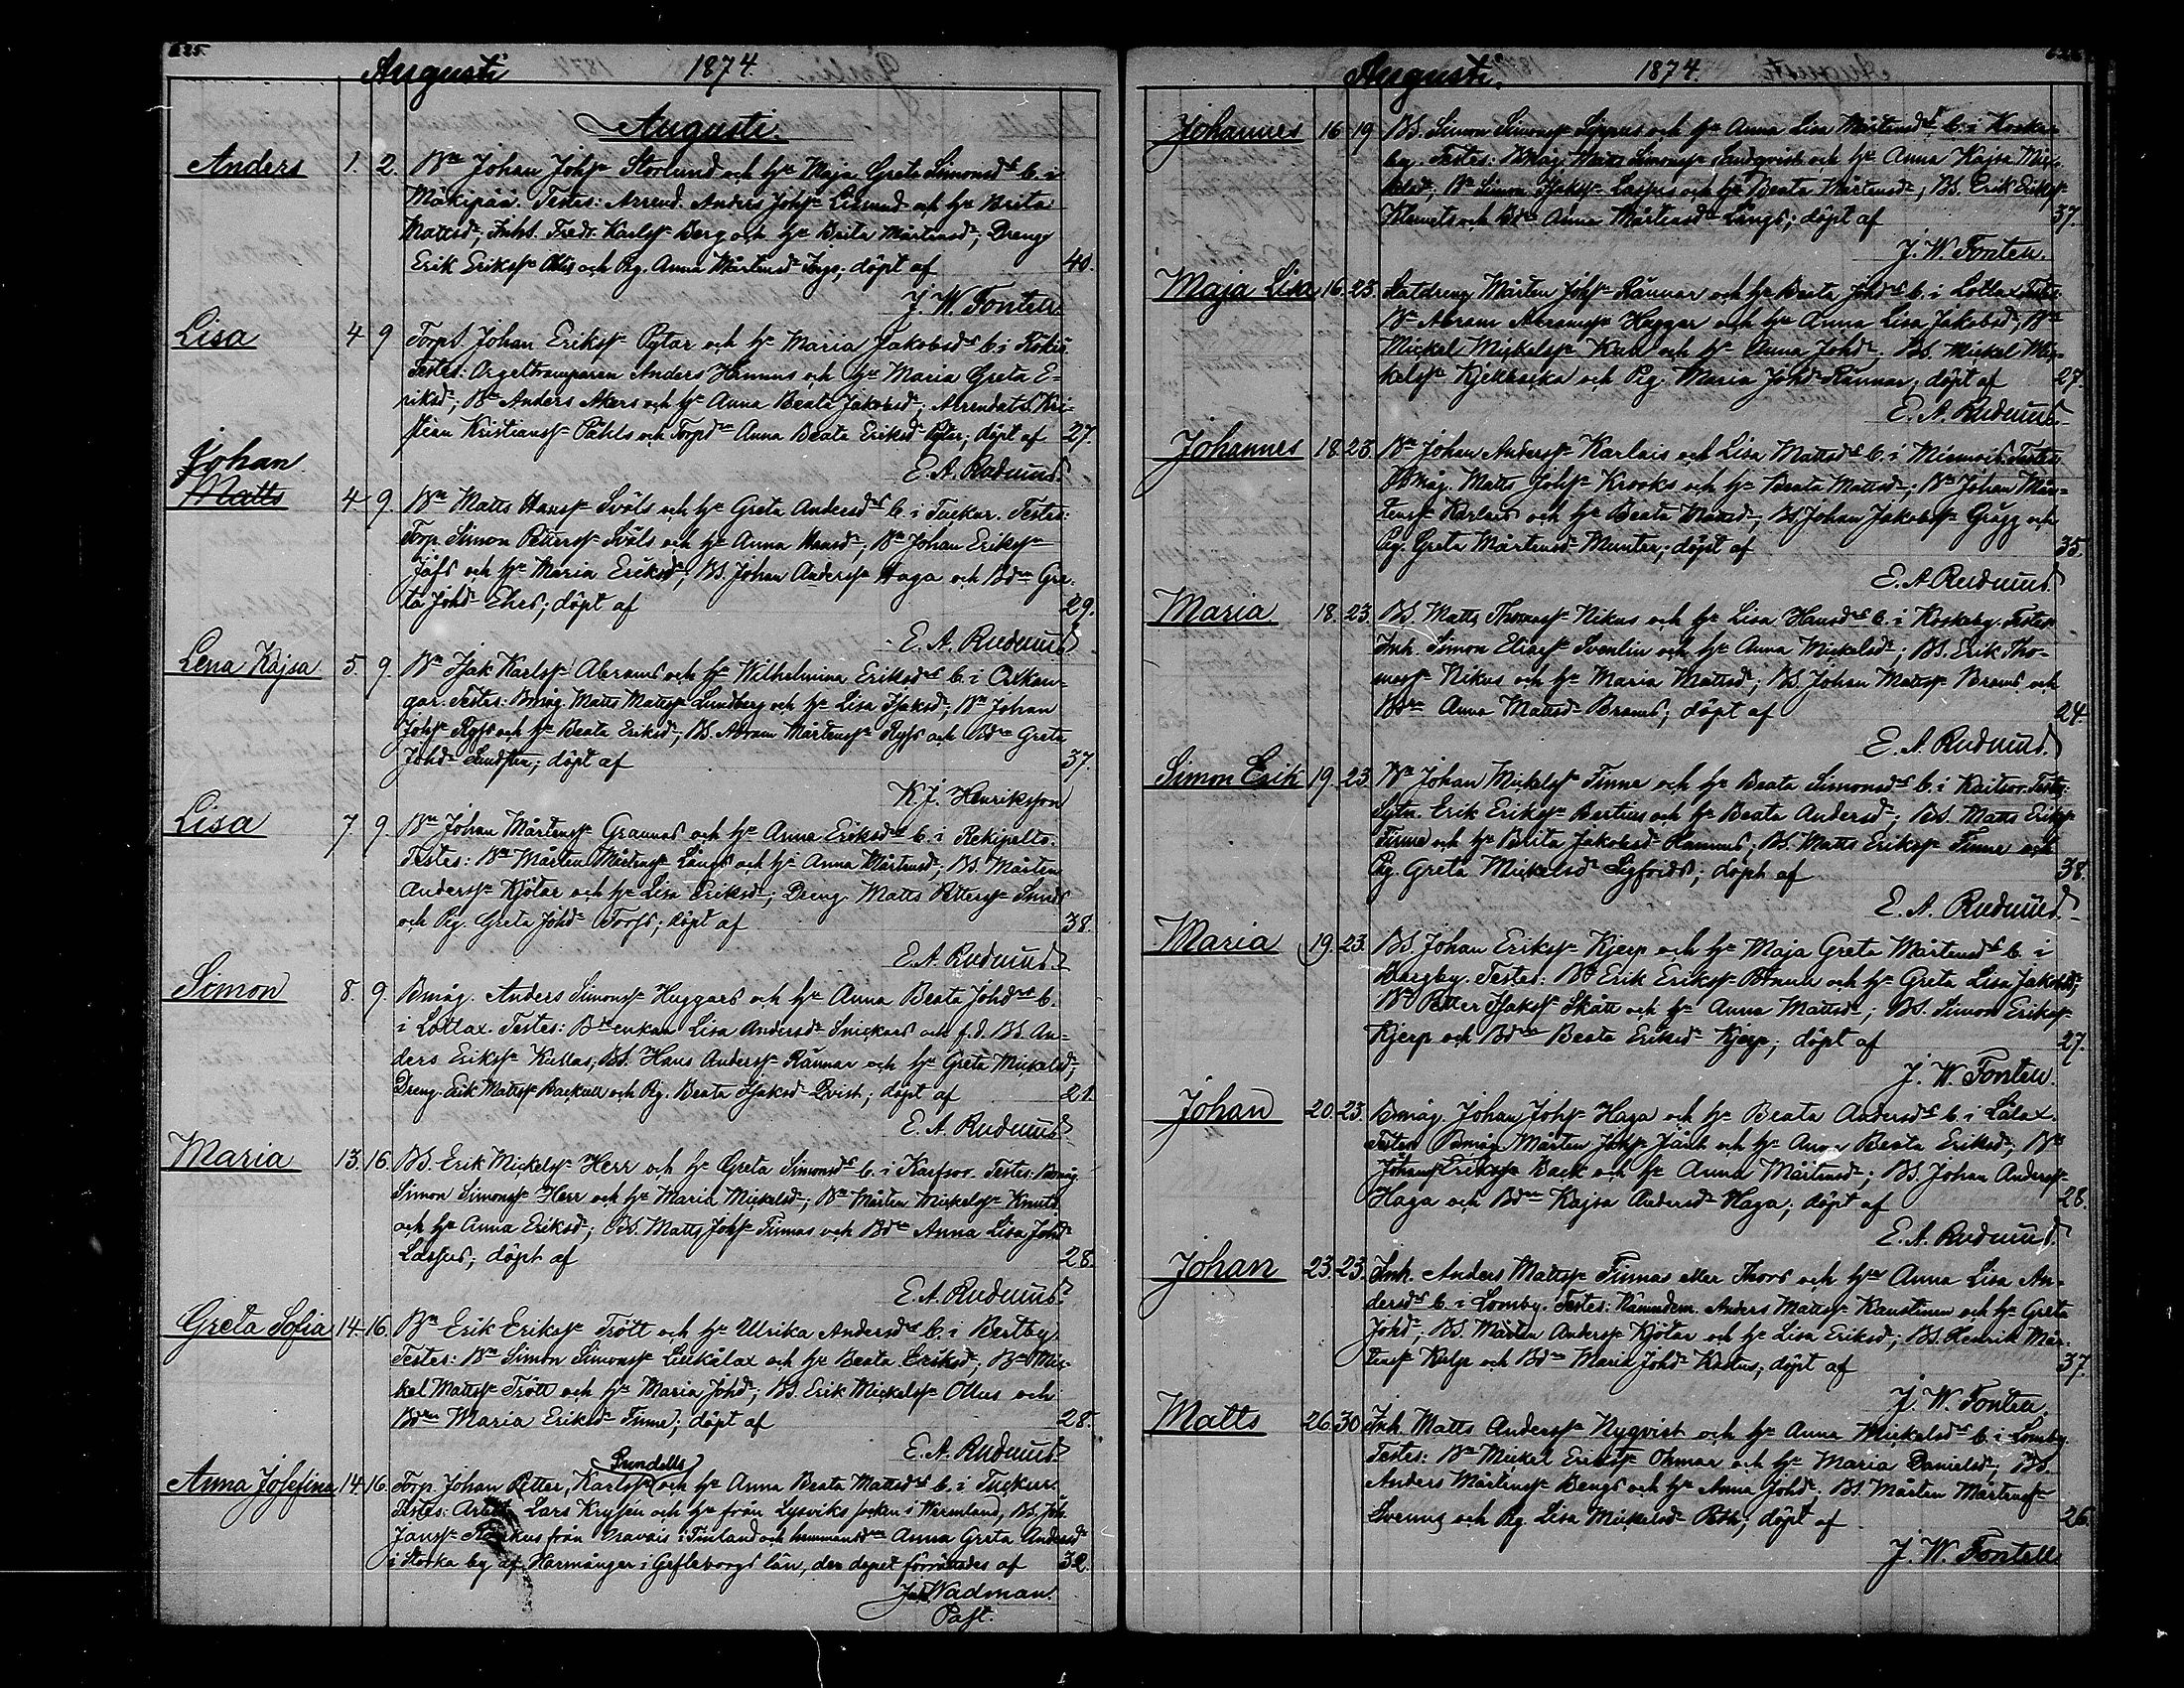 625.
Augusti 1874.
Augusti.
Anders 1. 2. Bn Johan Johss Storlund och hu Maja Greta Simonsdr b. i
Mäkipää. Testes: Arrend. Anders Johss Liesund och hu Brita
Mattsdr; Inhs. Fredr. Karlss Berg och hu Brita Mårtensdr; Dreng
Erik Erikss och Pig. Anna Mårtensdr Ings; döpt af 40.
J. W. Fontell
Lisa 4 9 Torp. Johan Erikss Pytar och hu Maria Jakobsdr b. i Kökiä.
Testes: Orgeltramparen Anders Hannus och hu Maria Greta E-
riksdr; Bn Anders Akers och hu Anna Beata Jakobsdr; Arrendats. Kri-
stian Kristianss Påhls och Torpdr Anna Beata Eriksdr Pytar; döpt af 27.
E. A. Rudnäs.
Johan
Matts 4 9 Bn Matts Hanss Svöls och hu Greta Andersdr b. i Tuckur. Testes:
Torp. Simon Petterss Svöls och hu Anna Hansdr; Bn Johan Erikss
Jåfs och hu Maria Eriksdr; BS. Johan Anderss Haga och Bdr Gre-
ta Johdr Ehrs; döpt af 29.
E. A. Rudnäs
Lena Kajsa 5. 9. Bn Isak Karlss Abrams och hu Wilhelmina Eriksdr b. i Oxkan-
gar. Testes: Bmåg. Matts Mattss Lundberg och hu Lisa Isaksdr; Bn Johan
Johss Ryss och hu Beata Eriksdr; BS. Abram Mårtenss Ryss och Bdr Greta
Johdr Lindsten; döpt af 37.
K. J. Henriksson
Lisa 7. 9. Bn Johan Mårtenss Grannas och hu Anna Eriksdr b. i Rekipelto.
Testes: Bn Mårten Mårtenss Långs och hu Anna Mårtensdr; BS. Mårten
Anderss Kjötar och hu Lisa Eriksdr; Dreng Matts Petterss Smeds
och Pig. Greta Johdr Torss; döpt af 38.
E. A. Rudnäs
Simon 8. 9. Bmåg. Anders Simonss Huggars och hu Anna Beata Johdr b.
i Lotlax. Testes: Bdrenkan Lisa Andersdr Snickars och f.d. BS. An-
ders Erikss Kullas; BS. Hans Anderss Rännar och hu Greta Mickelsdr;
Dreng Erik Mattss Backull och Pig. Beata Isaksdr Qvist; döpt af 21.
E. A. Rudnäs
Maria 13. 16. BS. Erik Mickelss Herr och hu Greta Simonsdr b. i Karfsor. Testes: Bmåg
Simon Simonss Herr och hu Maria Mickelsdr; Bn Mårten Mickelss Knuts
och hu Anna Eriksdr; BS. Matts Johss Finnas och Bdr Anna Lisa Johdr
Lassus; döpt af 28.
E. A. Rudnäs
Greta Sofia 14. 16. Bn Erik Erikss Trött och hu Ulrika Andersdr b. i Bertby.
Testes: Bn Simon Simonss Lickålax och hu Beata Eriksdr; Bn Mic-
kel Mattss Trött och hu Maria Johdr; BS. Erik Mickelss Ollus och
Bdr Maria Eriksdr Finne; döpt af 28.
E. A. Rudnäs
Anna Josefina 14. 16. Torp. Johan Petter Karlss Sundells och hu Anna Beata Mattsdr b. i Tuckur.
Testes: Lars Krysén och hu från Lysviks socken i Wermland, BS. Joh.
Janss från Oravais i Finland och hemmansdr Anna Greta Andersdr
i Stocka by af Harmånger i Gefleborgs län, der dopet förrättades af 32.
Wadman.
Past.
Augusti. 1874.
Johannes 16 19 BS. Simon Simonss Sippus och hu Anna Lisa Mårtensdr b. i Koske-
by. Testes: Bmåg. Matts Simonss Sandqvist och hu Anna Kajsa Mic-
kelsdr; Bn Simon Isakss Lassus och hu Beata Mårtensdr; BS. Erik Erikss
Klemets och Bdr Anna Mårtensdr Långs; döpt af 37.
J. W. Fontell.
Maja Lisa 16. 23. Statdreng Mårten Johss Rännar och hu Beata Johdr b. i Lotlax. Testes:
Bn Abram Abramss Huggar och hu Anna Lisa Jakobsdr; Bn
Mickel Mickelss Kull och hu Anna Johdr; BS. Mickel Mic-
kelss Kjellbacka och Pig. Maria Johdr Rännar; döpt af 27.
E. A. Rudnäs
Johannes 18. 23. Bn Johan Anderss Karlais och Lisa Mattsdr b. i Miemois. Testes
Bmåg. Matts Johss Krooks och hu Beata Mattsdr; Bn Johan Mår-
tenss Karlais och hu Beata Mattsdr; BS Johan Jakobss Grägg och
Pig. Greta Mårtensdr Munter; döpt af 35.
E. A. Rudnäs
Maria 18. 23. BS. Matts Thomass Nikus och hu Lisa Hansdr b. i Koskeby. Testes
Inh. Simon Eliass Svenlin och hu Anna Mickelsdr; BS. Erik Tho-
mass Nikus och hu Maria Mattsdr; BS. Johan Mattss Brams och
Bdr Anna Mattsdr Brams; döpt af 24.
E. A. Rudnäs.
Simon Erik 19. 23 Bn Johan Mickelss Finne och hu Beata Simonsdr b. i Kaitsor. Testes:
Sytn. Erik Erikss Bertius och hu Beata Andersdr; BS. Matts Erikss
Finne och hu Brita Jakobsdr Hannus; BS. Matts Erikss Finne och
Pig. Greta Mickelsdr Sigfrids; döpt af 38.
E. A. Rudnäs
Maria 19. 23. BS. Johan Erikss Kjerp och hu Maja Greta Mårtensdr b. i
Bergby. Testes: Bn Erik Erikss Brann och hu Greta Lisa Jakobsdr;
Bn Petter Isakss Skått och hu Anna Mattsdr; BS. Simon Erikss
Kjerp och Bdr Beata Eriksdr Kjerp; döpt af 27.
J. W. Fontell.
Johan 20. 23. Bmåg. Johan Johss Haga och hu Beata Andersdr b. i Lålax.
Testes Bmåg Mårten Johss Jånt och hu Anna Beata Eriksdr; Bn
Johan Erikss Back och hu Anna Mårtensdr; BS. Johan Anderss
Haga och Bdr Kajsa Andersdr Haga; döpt af 28.
E. A. Rudnäs.
Johan 23. 23. Inh. Anders Mattss Finnas eller Thors och hu Anna Lisa An-
dersdr b. i Lomby. Testes: Nämndem. Anders Mattss Kaustinen och hu Greta
Johdr; BS. Mårten Anderss Kjötar och hu Lisa Eriksdr; BS. Henrik Mår-
tenss Kulp och Bdr Maria Johdr Kastus; döpt af 37.
J. W. Fontell.
Matts 26. 30 Inh. Matts Anderss Nyqvist och hu Anna Mickelsdr b. i Lomby.
Testes: Bn Mickel Erikss Öhmar och hu Maria Danielsdr; BS.
Anders Mårtenss Bengs och hu Anna Johdr. BS. Mårten Mårtenss
Svenns och Pig Lisa Mickelsdr Poth; döpt af 26.
J. W. Fontell